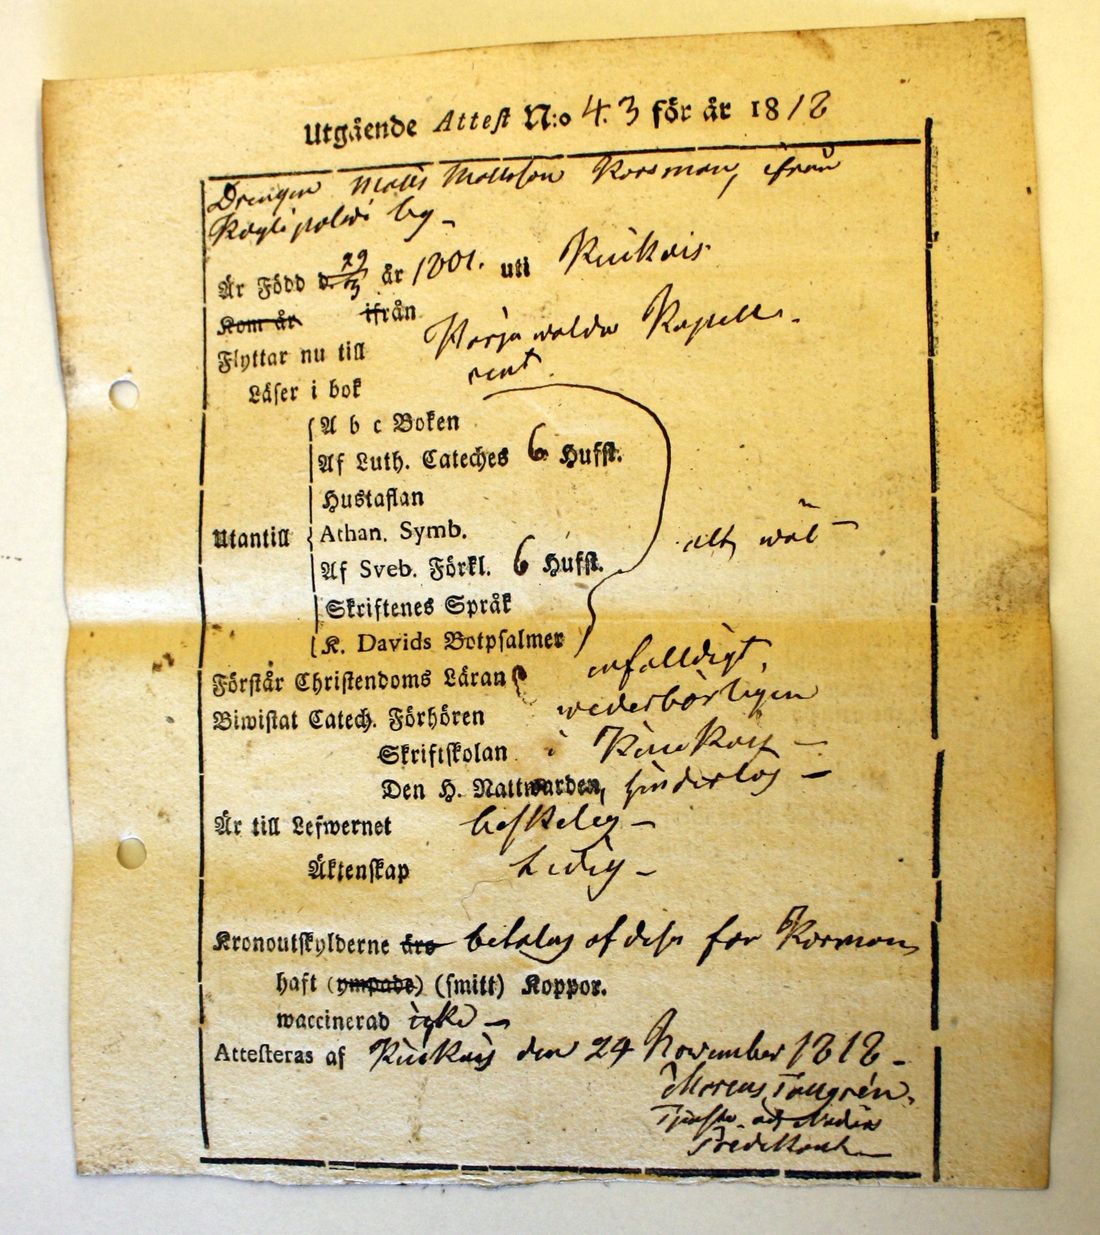 Utgående Attest N:o 43 för år 1818
Drengen Matts Mattsson Korsman, ifrån
by -
Är Född d. 29/3 år 1801. uti Kiukais
Kom år ifrån
Flyttar nu till Harjawalda Kapell.
Läser i bok rent.
A b c Boken
Af Luth. Cateches 6 Hufst.
Hustaflan
Utantill Athan. Symb. alt, wäl -
Af Sveb. Förkl. 6 Hufst.
Skriftenes Språk
K. Davids Botpsalmer
Förstår Christendoms Läran enfalldigt,
Biwistat Catech. Förhören wederbörligen
Skriftskolan i Kiukais -
Den H. Nattwarden, hinderlös -
Är till Lefwernet beskelig -
Äktenskap Ledig -
Kronoutskylderne äro betalas af dess far Korsman,
haft (ympade) (smitt) Koppor.
waccinerad icke -
Attesteras af Kiukais den 24 November 1818 -
Marcus Tallgrén,
Predikant